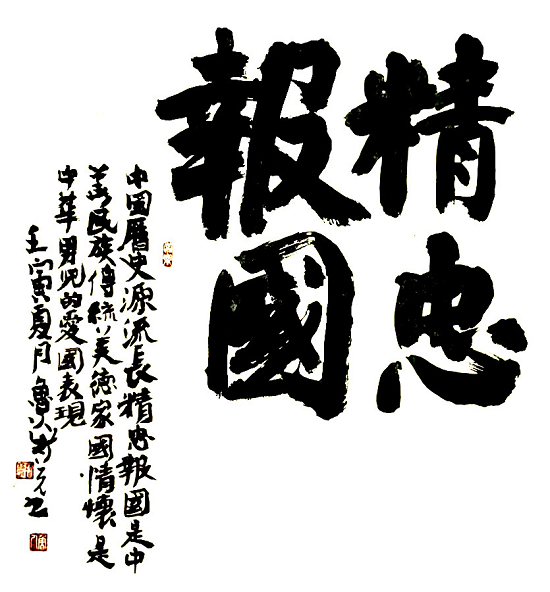 精忠
報國
中国曆史源流長精忠報國是中
華民族傳統美德家國情懷是
中華男兒的愛國表現
壬寅夏月魯人